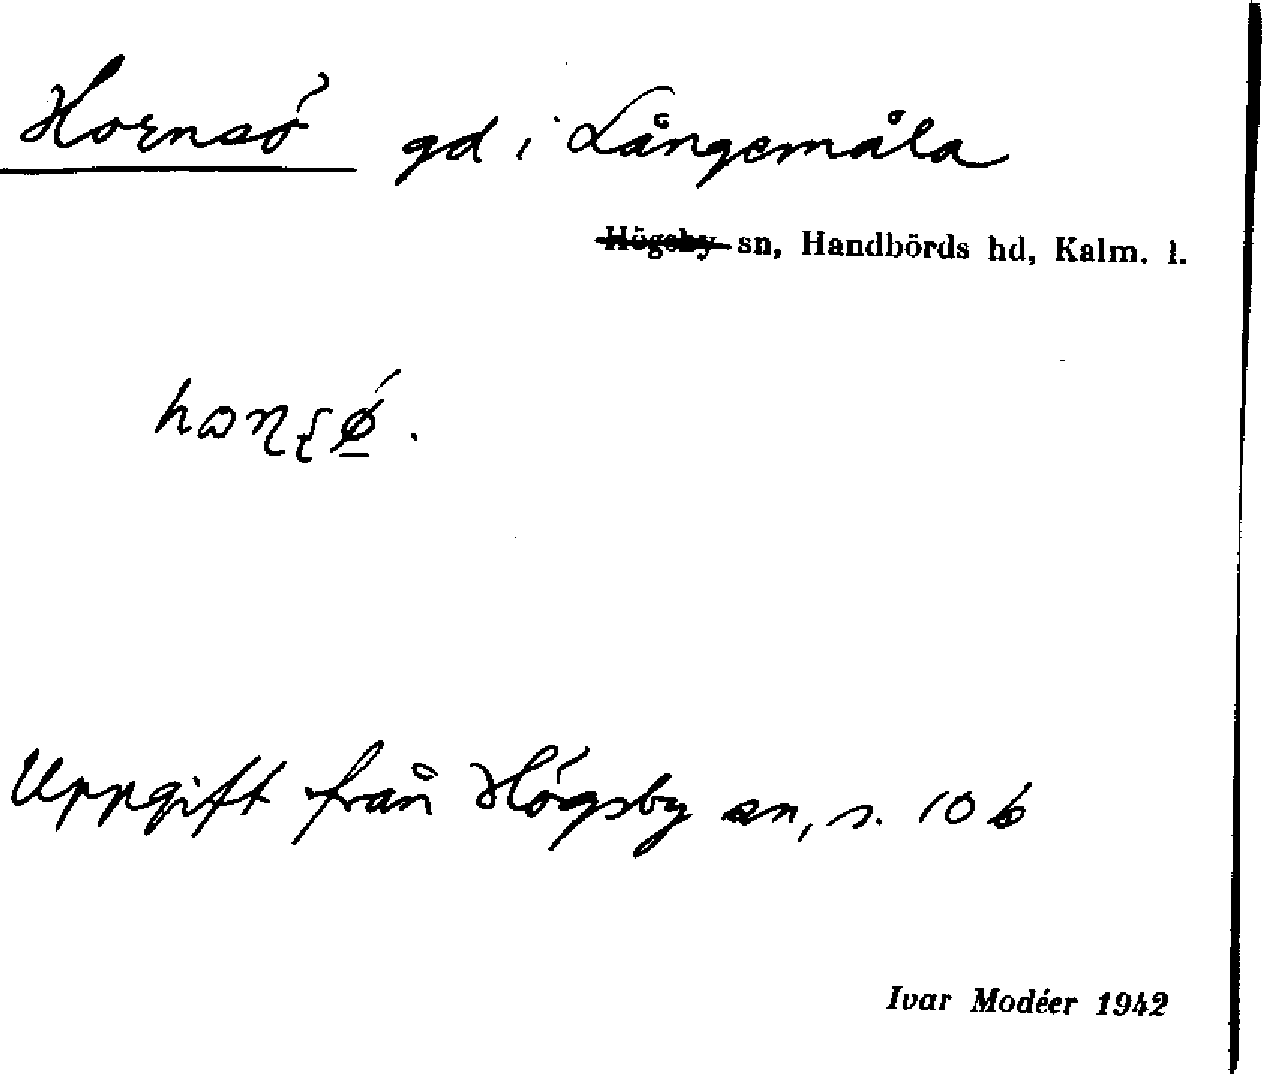 Hornsö gd i Långemåla
Högsby sn, Handbörds hd, Kalm. l.
Uppgift från Högsby sn, s. 10 b
Ivar Modéer 1942